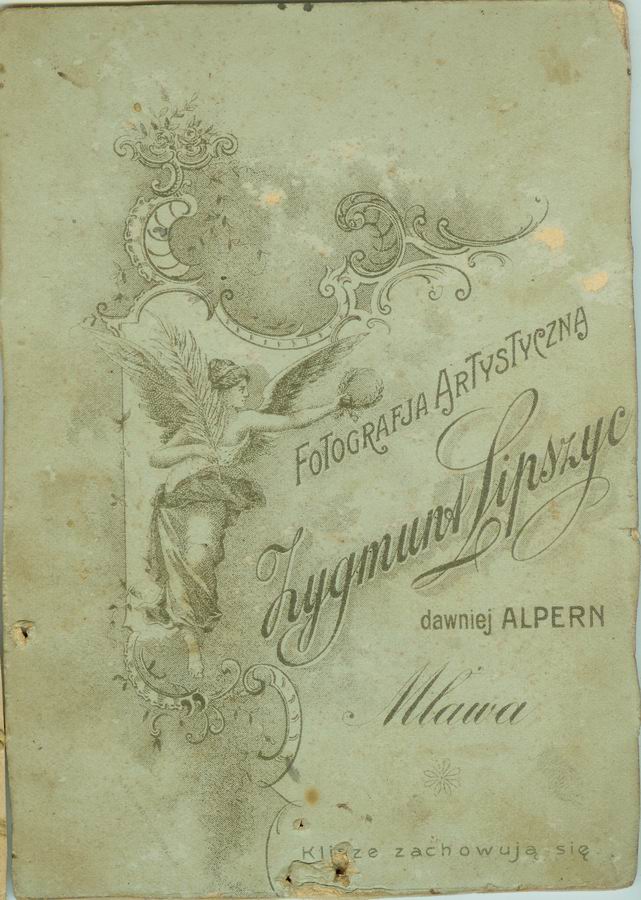 FOTOGRAFJA ARTYSTYCZNA
Zygmunt Lipszyc
dawniej ALPERN
Mława
Klisze zachowują się